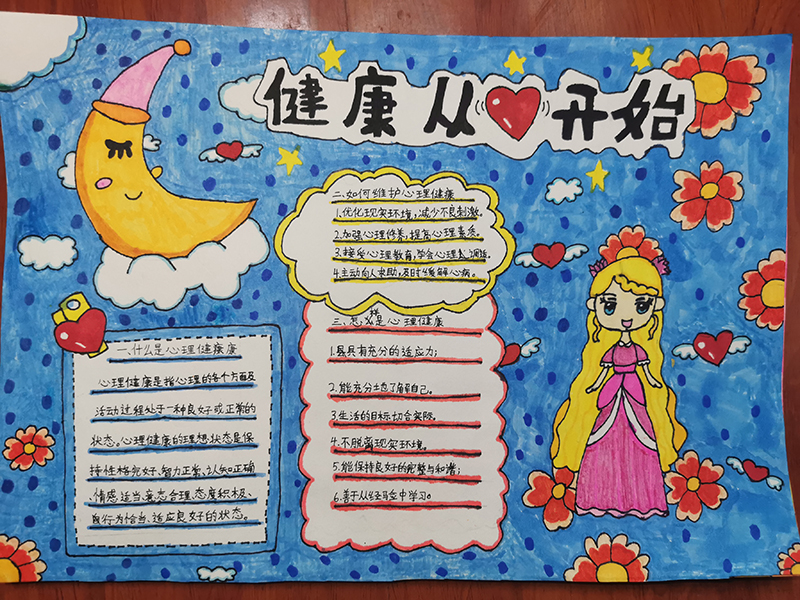 健康从开始
二、如何维护心理健康
1.优化现实环境,减少不良刺激。
2.加强心理修养,提高心理素质。
3.接受心理教育,学会心理调适。
4.主动向人求助,及时缓解心病。
三、怎样是心理健康
1.具有充分的适应力;
2.能充分地了解自己。
3.生活的目标切合实际。
4.不脱离现实环境。
5.能保持良好的完整与和谐;
6.善于从经验中学习。
一、什么是心理健康康
心理健康是指心理的各个方面及
活动过程处于一种良好或正常的
状态。心理健康的理想状态是保
持性格完好、智力正常、认知正确
、情感适当、意志合理、态度积极、
行为恰当、适应良好的状态。